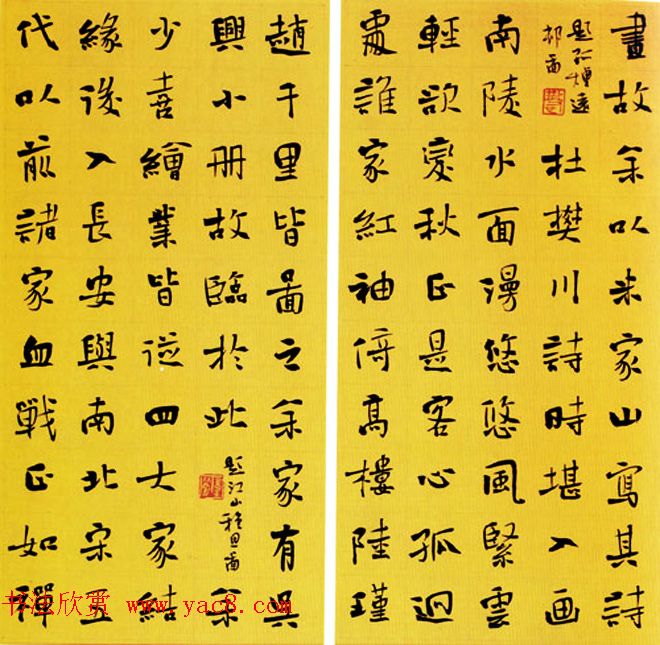 畫故余以米家山寫其詩
題孤煙遠
邨啚
杜樊川詩時堪入画
南陵水面漫悠悠風緊雲
輕欲變秋正是客心孤迥
處誰家紅袖倚高樓陸瑾
趙千里皆啚之余家有吳
興小冊故臨於此
題江山
穐思啚
余
少喜繪業皆從四大家結
緣後入長安與南北宋五
代以前諸家血戰正如禪
书法欣赏 www.yac8.com